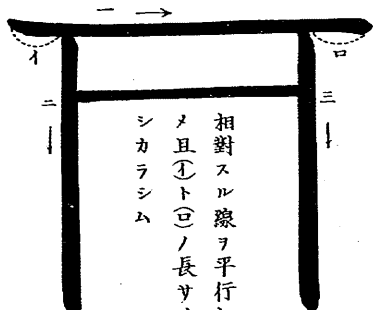 一
イ
ロ
二
三
相對スル線ヲ平行
メ且(イ)ト(ロ)ノ長サ
シカラシム